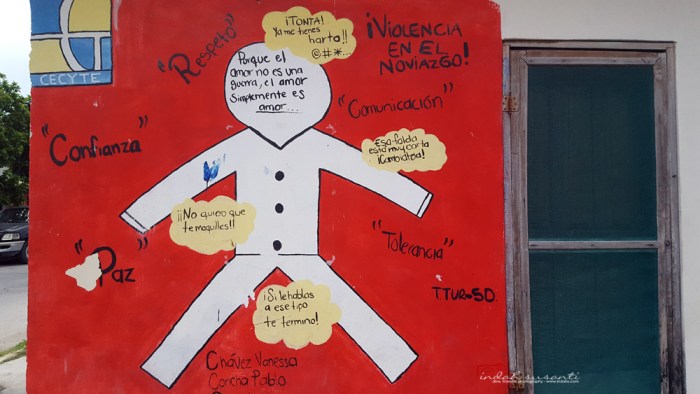 CECYTE
"Respeto"
¡TONTA!
Ya me tienes
harta!!
@#*...
¡VIOLENCIA
EN EL
NOVIAZGO!
Porque el
amor no es una
guerra, el amor
simplemente es
amor...
"Confianza"
"Comunicación"
Esa falda
esta muy corta
¡Cambiatela!
¡¡No quiero que
te maquilles!!
"Paz"
"Tolerancia"
¡Si le hablas
a ese tipo
te termino!
TTUR-5D.
Chávez Vanessa
Concha Pablo
indah susanti